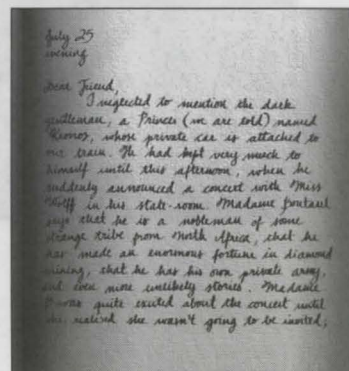 July 25
evening
Dear Friend,
I neglected to mention the dark
gentleman, a Prince (we are told) named
Kronos, whose private car is attached to
our train. He had kept very much to
himself until this afternoon, when he
suddenly announced a concert with Miss
Wolff in his state-room. Madame Boutarel
says that he is a nobleman of some
strange tribe from North Africa, that he
has made an enormous fortune in diamond
mining, that he has his own private army,
and even more unlikely stories. Madame
B was quite excited about the concert until
she realised she wasn't going to be invited;